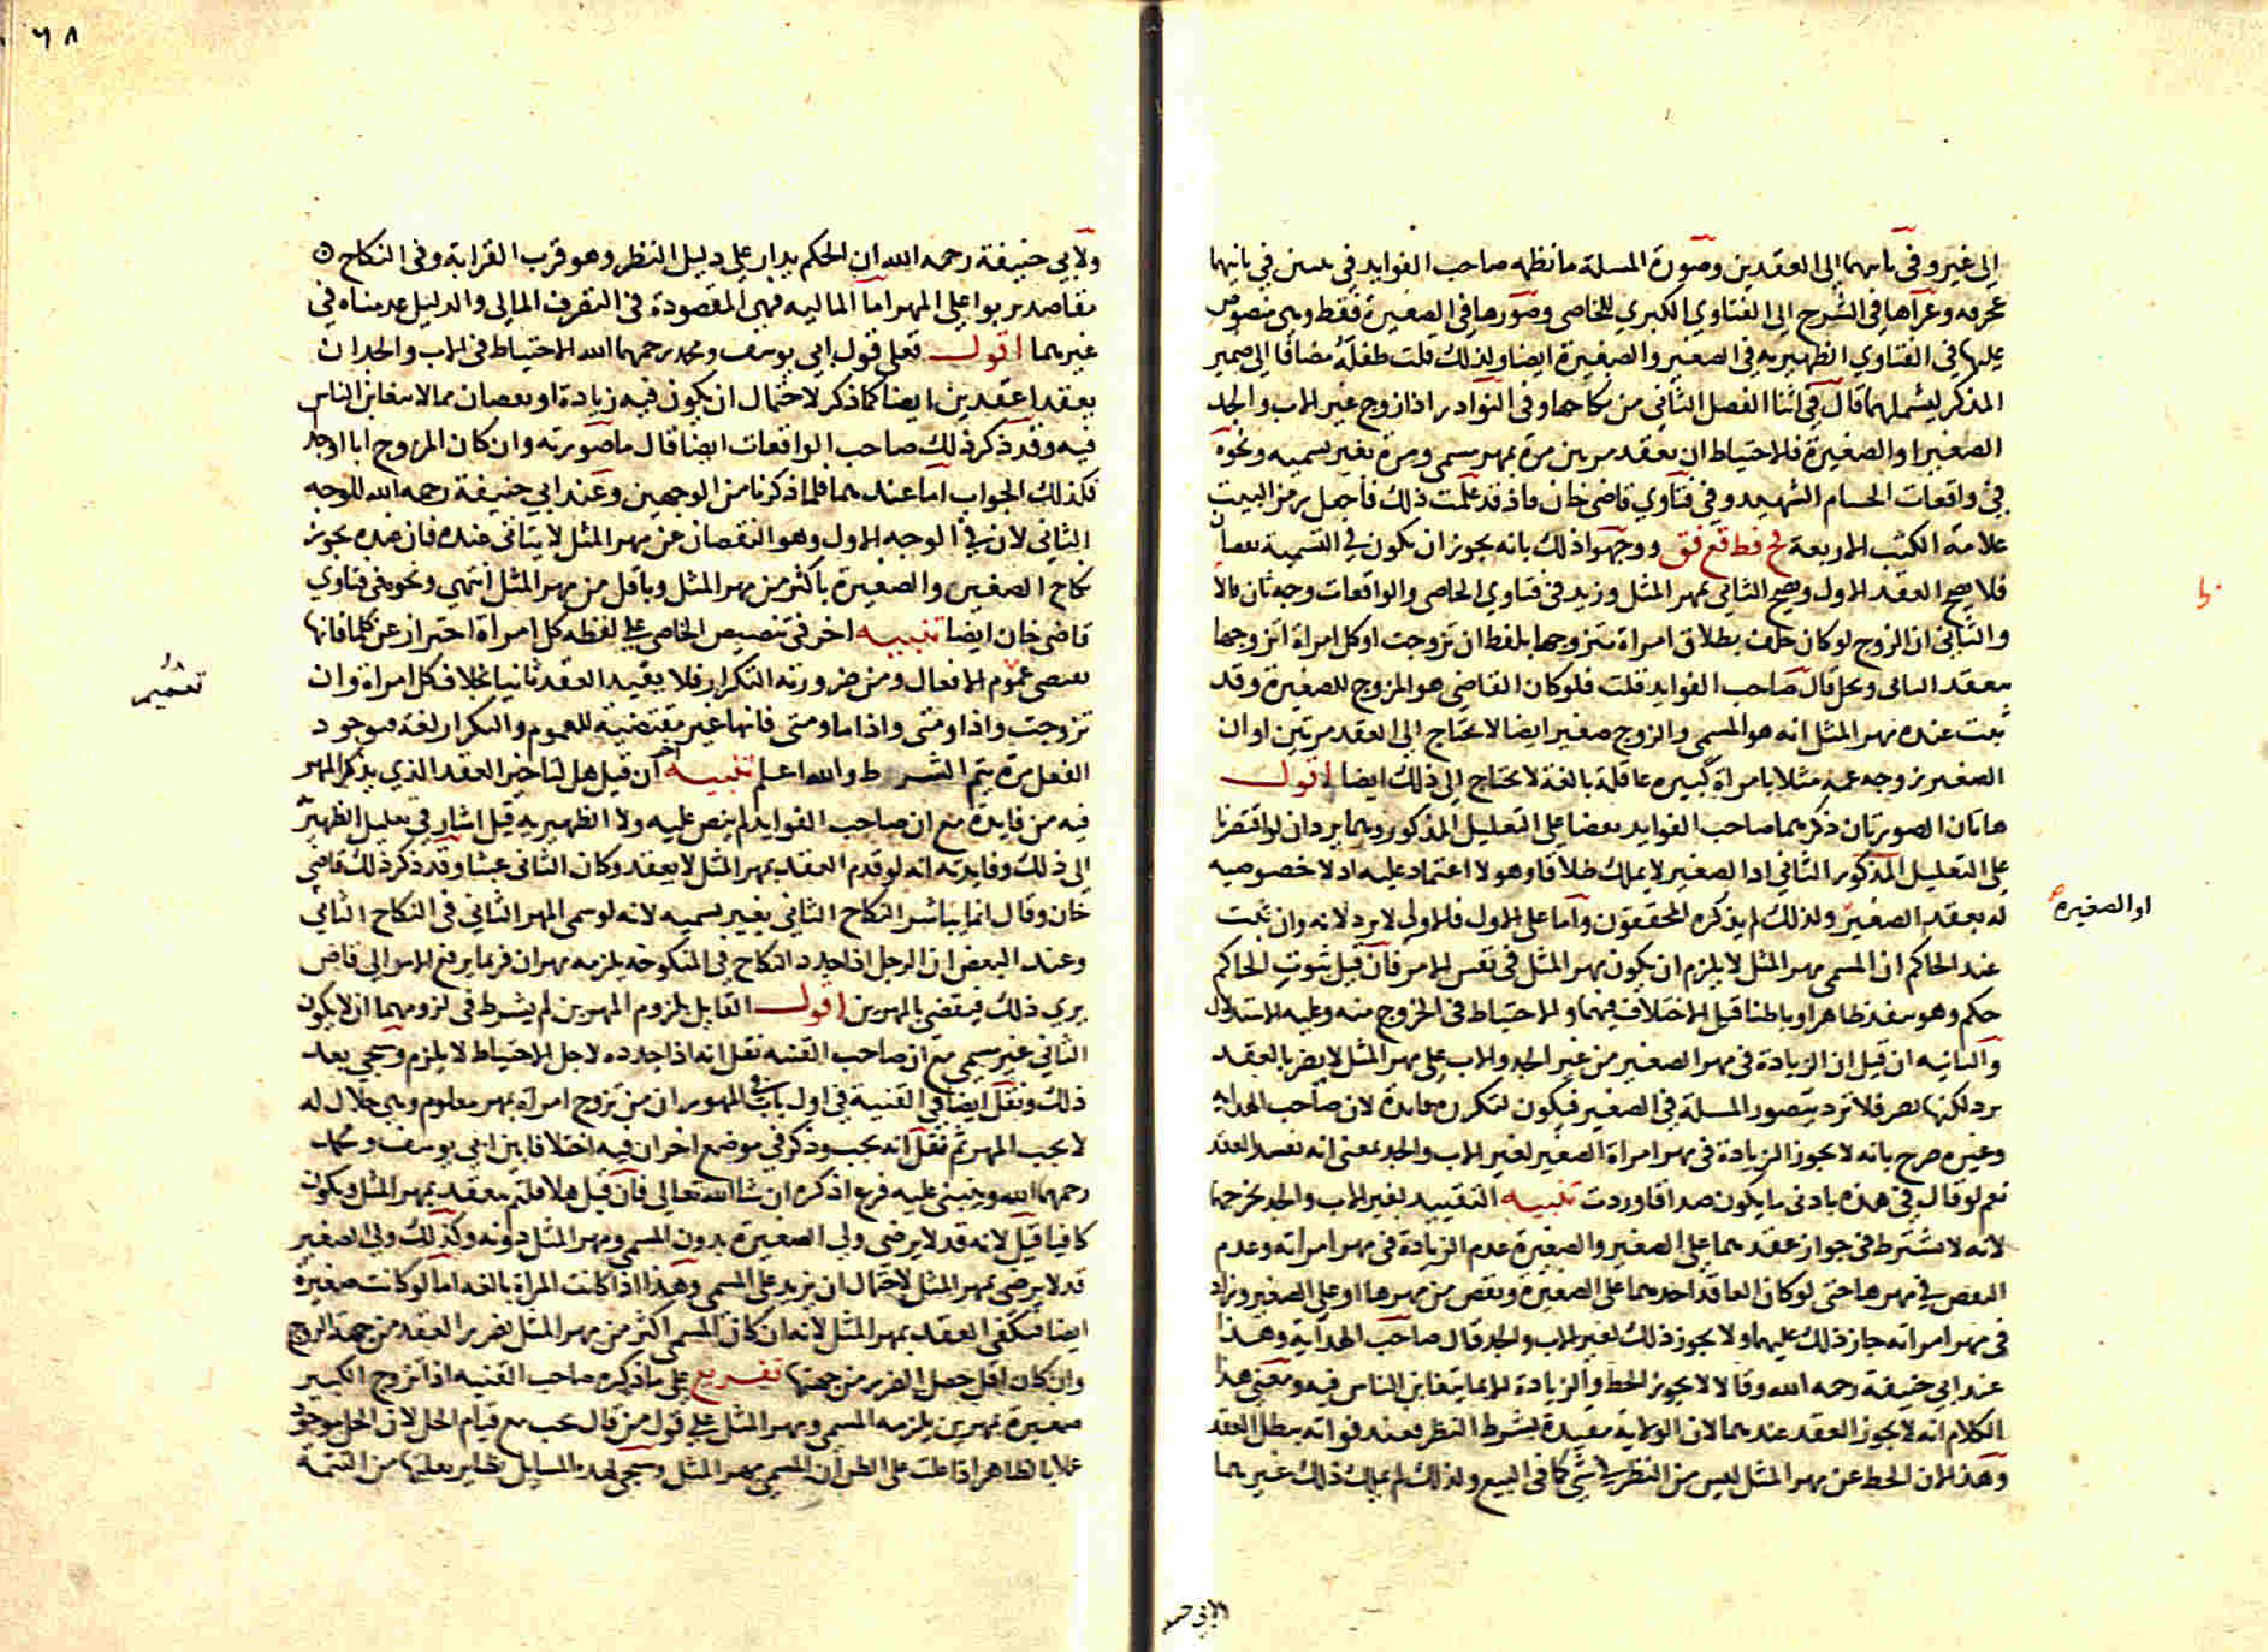 الى غيره وفي ثانيهما الى العقدين وصورة المسلة ما نظمه صاحب الفوايد في بيتين في ثانيهما
تحرفه وعزاها في الشرح الى الفتاوي الكبري للخاصي وصورها في الصغيرة فقط وهي منصوص
عليها في الفتاوي الظهيريه في الصغير والصغيرة ايضا ولذلك قلت طفله مضافا الى ضمير
المذكر ليشملهما قال في اثنا الفصل الثاني من نكاحها وفي النوادر اذا زوج غير الاب والجد
الصغير او الصغيرة فالاحتياط ان يعقد مرتين مرة بمهر مسمى ومرة بغير تسميه ونحوه
في واقعات الحسام الشهيد وفي فتاوي قاضي خان فاذ قد علمت ذلك فاجعل رمز البيت
علامة الكتب الاربعة فخ فظ قع فق ووجهوا ذلك بانه يجوز ان يكون في التسمية نقصان
فلا يصح العقد الاول ويصح الثاني بمهر المثل وزيد في فتاوي الخاصي والواقعات وجه ثان الا
والثاني ان الزوج لو كان حلف بطلاق امراة يتزوجها بلفظ ان تزوجت او كل امراة اتزوجها
ينعقد الثاني وتحل قال صاحب الفوايد قلت فلو كان القاضي هو المزوج للصغيرة وقد
ثبت عنده مهر المثل انه هو المسمى والزوج صغير ايضا لا يحتاج الى العقد مرتين او ان
الصغير زوجه عمه مثلا بامراة كبيره عاقلة بالغة لا يحتاج الى ذلك ايضا اقول
هاتان الصورتان ذكرهما صاحب الفوايد نقضا على التعليل المذكور وهما يردان لو اقتصرنا
على التعليل المذكور الثاني اذ الصغير لا يملك طلاقا وهو لا اعتماد عليه اذ لا خصوصيه
له بعقد الصغير ولذلك لم يذكره المحققون واما على الاول فالاولى لا يرد لانه وان ثبت
او الصغيرة
عند الحاكم ان المسمى مهر المثل لا يلزم ان يكون مهر المثل في نفس الامر فان قيل ثبوت الحاكم
حكم وهو ينفذ ظاهرا وباطنا قيل الاختلاف فيهما والاحتياط في الخروج منه وعليه الاستدلال
والثانيه ان قيل ان الزيادة في مهر الصغير من غير الجد والاب على مهر المثل لا يضر بالعقد
يرد لكنها تضر فلا ترد بتصور المسلة في الصغير فيكون لتكرره فايدة لان صاحب الهدايه
وغيره صرح بانه لا يجوز الزيادة في مهر امراة الصغير لغير الاب والجد بمعنى انه يفسد العقد
نعم لو قال في هذه بادنى ما يكون صداقا وردت تنبيه التقييد لغير الاب والجد يخرجهما
لانه لا يشترط في جواز عقدهما على الصغير والصغيرة عدم الزيادة في مهر امراته وعدم
النقص في مهرها حتى لو كان العاقد احدهما على الصغيرة ونقص من مهرها او على الصغير وزاد
في مهر امراته جاز ذلك عليهما ولا يجوز ذلك لغير الاب والجد قال صاحب الهداية وهذا
عند ابي حنيفة رحمه الله وقالا لا يجوز الحط والزيادة الا بما يتغابن الناس فيه ومعنى هذا
الكلام انه لا يجوز العقد عندهما لان الولاية مقيدة بشرط النظر فعند فواته يبطل العقد
وهذا لان الحط عن مهر المثل ليس من النظر في شي كما في البيع ولذلك لم يملك ذلك غيرهما
٦٨
ولابي حنيفة رحمه الله ان الحكم يدار على دليل النظر وهو قرب القرابة وفي النكاح
مقاصد تربوا على المهر اما الماليه فهي المقصودة في التصرف المالي والدليل عدمناه في
غيرهما اقول فعلى قول ابي يوسف ومحمد رحمهما الله الاحتياط في الاب والجد ان
يعقدا عقدين ايضا كما ذكر لاحتمال ان يكون فيه زيادة او نقصان مما لا يتغابن الناس
فيه وقد ذكر ذلك صاحب الواقعات ايضا قال ما صورته وان كان المزوج ابا او جد
فكذلك الجواب اما عندهما فلما ذكرنا من الوجهين وعند ابي حنيفة رحمه الله للوجه
الثاني لان في الوجه الاول وهو النقصان عن مهر المثل لا يتاتى عنده فان عنده يجوز
نكاح الصغير والصغيرة باكثر من مهر المثل وباقل من مهر المثل انتهى ونحوه في فتاوي
قاضي خان ايضا تنبيه اخر في تنصيص الخاصي على لفظه كل امراة احتراز عن كلما فانها
تقتضي عموم الافعال ومن ضرورته التكرار فلا يفيد العقد ثانيا بخلاف كل امراة وان
تزوجت واذا ومتى واذا ما ومتى فانها غير مقتضية للعموم والتكرار لغة فبوجود
الفعل مرة يتم الشرط والله اعلم تنبيه اخر ان قيل هل لتاخير العقد الذي يذكر المهر
فيه من فايدة مع ان صاحب الفوايد لم ينص عليه ولا الظهيريه قيل اشار في تعليل الظهيريه
الى ذلك وفايدته انه لو قدم العقد بمهر المثل لانعقد وكان الثاني عبثا وقد ذكر ذلك قاضي
خان وقال انما يباشر النكاح الثاني بغير تسميه لانه لو سمى المهر الثاني في النكاح الثاني
وعند البعض ان الرجل اذا جدد النكاح في المنكوحة يلزمه مهران فربما يرفع الامر الى قاض
يري ذلك فيقضي بالمهرين اقول القايل بلزوم المهرين لم يشرط في لزومهما ان لا يكون
الثاني غير مسمى مع ان صاحب القنيه نقل انه اذا جدده لاجل الاحتياط لا يلزم وسيجي بعد
ذلك ونقل ايضا في القنية في اول باب في المهور ان من تزوج امراة بمهر معلوم وهي حلال له
لا يجب المهر ثم نقل انه يجب وذكر في موضع اخر ان فيه اختلافا بين ابي يوسف ومحمد
رحمهما الله ويبتنى عليه فرع اذكره ان شا الله تعالى فان قيل هلا قلتم يعقد بمهر المثل ويكون
كافيا قيل لانه قد لا يرضى ولي الصغيرة بدون المسمى ومهر المثل دونه وكذلك ولي الصغير
قد لا يرضى بمهر المثل لاحتمال ان يزيد على المسمى وهذا اذا كانت المراة بالغه اما لو كانت صغيرة
ايضا فيكفي العقد بمهر المثل لانه ان كان المسمى اكثر من مهر المثل تضرر العقد من جهة الزوج
وان كان اقل حصل الضرر من جهتها تفريع على ما ذكره صاحب القنيه اذا تزوج الكبير
صغيرة بمهرين يلزمه المسمى ومهر المثل على قول من قال يجب مع قيام الحل لان الحل موجود
عملا بالظاهر اذا غلب على الظن ان المسمى مهر المثل وسيجي لهذه المسايل نظاير نقلتها من التتمة